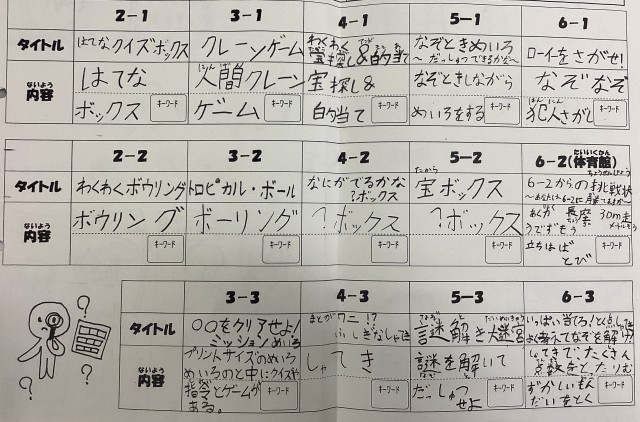 2-1 3-1 4-1 5-1 6-1
タイトル はてなクイズボックス クレーンゲーム わくわく宝探し&的当て なぞときめいろ ローイをさがせ!
~だっしゅつできるかな~
ないよう
内容 はてな 人間クレーン 宝探し& なぞときしながら なぞなぞ
ボックス ゲーム 的当て めいろをする 犯人さがし
キーワード キーワード キーワード キーワード キーワード
2-2 3-2 4-2 5-2 6-2(体育館)
たいいくかん
タイトル わくわくボウリング トロピカル・ボール なにがでるかな 宝ボックス 6-2からの挑戦状
?ボックス
ないよう
内容 ボウリング ボーリング ?ボックス ?ボックス 30m走
うでずもう
立ちはばとび
キーワード キーワード キーワード キーワード
3-3 4-3 5-3 6-3
タイトル ○○をクリアせよ! まとがワニ!? 謎解き大迷宮 いっぱい当てろ!
ミッションめいろ ふしぎなしゃてき
ないよう
内容 プリントサイズのめいろ しゃてき 謎を解いて しゃてきでたくさん
めいろのと中にクイズや だっしゅつせよ 点数をとったり
指令とゲームがある。 むずかしいもんだいをとく
キーワード キーワード キーワード キーワード